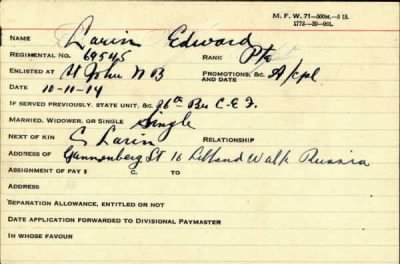 M. F. W. 71—500M.—5 18.
1772—39—901.
NAME Larin Edward
REGIMENTAL NO. 69545 RANK Pte
ENLISTED AT St John N B PROMOTIONS, &C A/Cpl
DATE 10-11-14 AND DATE
IF SERVED PREVIOUSLY, STATE UNIT, &C. 26th Bn C.E.F.
MARRIED, WIDOWER, OR SINGLE Single
NEXT OF KIN S Larin RELATIONSHIP
ADDRESS OF Gannenberg St 16 Walk Russia
ASSIGNMENT OF PAY $ C. TO
ADDRESS
SEPARATION ALLOWANCE, ENTITLED OR NOT
DATE APPLICATION FORWARDED TO DIVISIONAL PAYMASTER
IN WHOSE FAVOUR